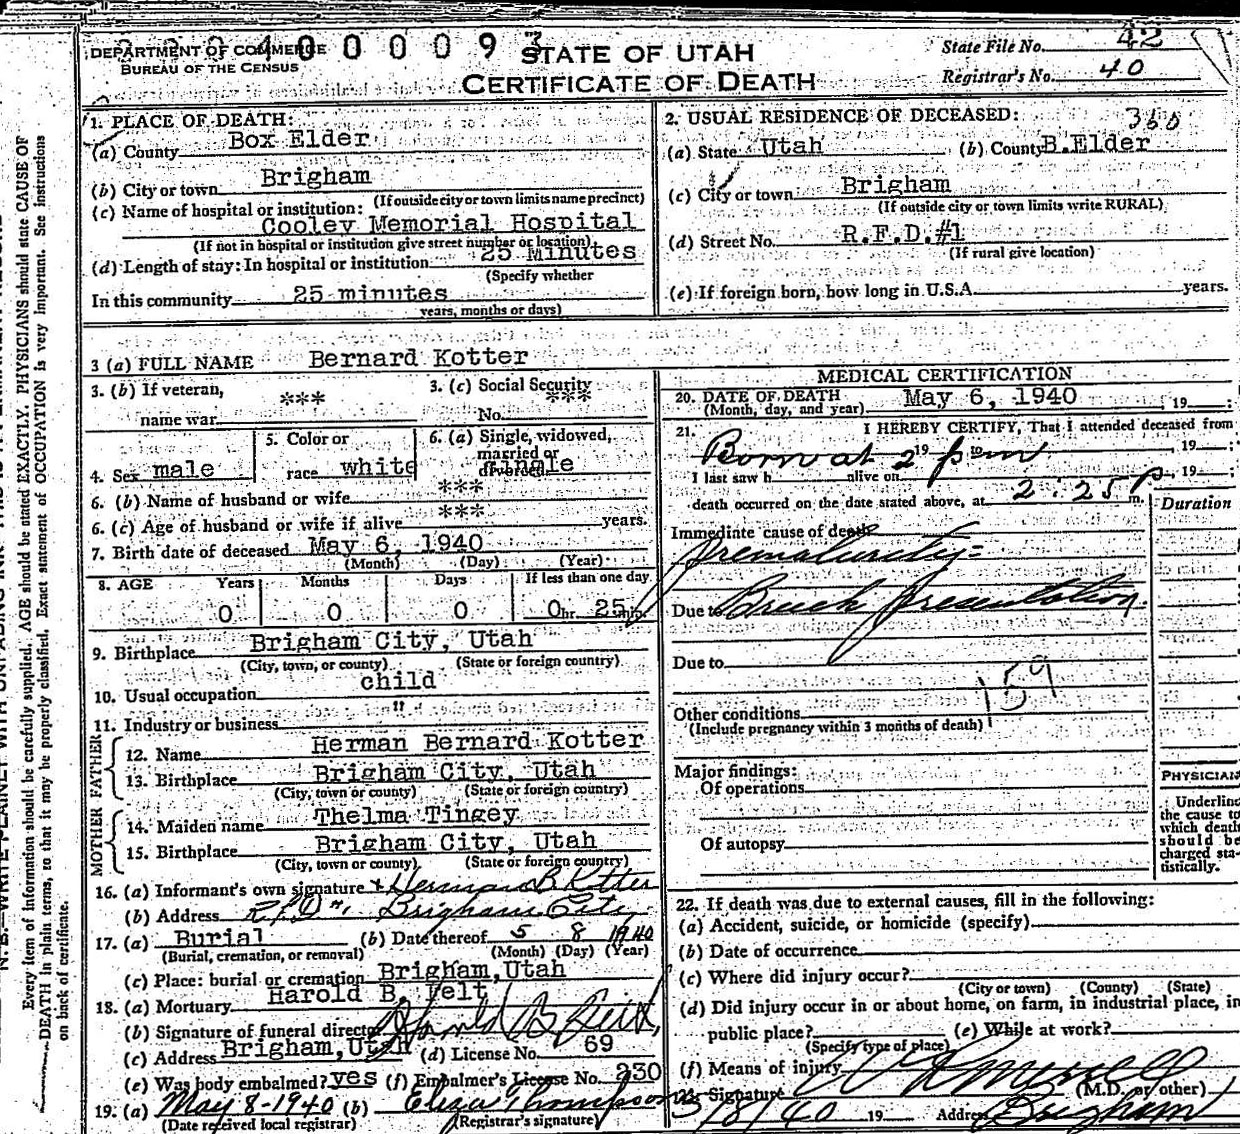 DEPARTMENT OF COMMERCE
BUREAU OF THE CENSUS
STATE OF UTAH
CERTIFICATE OF DEATH
State File No. 42
Registrar's No. 40
1. PLACE OF DEATH:
(a) County Box Elder
(b) City or town Brigham
(If outside city or town limits name precinct)
(c) Name of hospital or institution:
Cooley Memorial Hospital
(If not in hospital or institution give street number or location)
(d) Length of stay: In hospital or institution 25 Minutes
(Specify whether
In this community 25 minutes
years, months or days)
2. USUAL RESIDENCE OF DECEASED: 360
(a) State Utah (b) County B.Elder
(c) City or town Brigham
(If outside city or town limits write RURAL)
(d) Street No. R.F.D.#1
(If rural give location)
(e) If foreign born, how long in U.S.A. years.
3 (a) FULL NAME Bernard Kotter
3. (b) If veteran, ***
name war
3. (c) Social Security ***
No.
4. Sex male
5. Color or
race white
6. (a) Single, widowed,
married or
divorced single
6. (b) Name of husband or wife ***
6. (c) Age of husband or wife if alive *** years.
7. Birth date of deceased May 6, 1940
(Month) (Day) (Year)
8. AGE Years Months Days If less than one day
0 0 0 0 hr. 25 min.
9. Birthplace Brigham City, Utah
(City, town, or county) (State or foreign country)
10. Usual occupation child
11. Industry or business "
FATHER
12. Name Herman Bernard Kotter
13. Birthplace Brigham City, Utah
(City, town or county) (State or foreign country)
MOTHER
14. Maiden name Thelma Tingey
15. Birthplace Brigham City, Utah
(City, town or county) (State or foreign country)
16. (a) Informant's own signature x Herman B Kotter
(b) Address R.F.D #1 Brigham City
17. (a) Burial (b) Date thereof 5 8 1940
(Burial, cremation, or removal) (Month) (Day) (Year)
(c) Place: burial or cremation Brigham, Utah
18. (a) Mortuary Harold B. Felt
(b) Signature of funeral director Harold B Felt
(c) Address Brigham, Utah (d) License No. 69
(e) Was body embalmed? yes (f) Embalmer's License No. 230
19. (a) May 8-1940 (b) Eliza Thompson
(Date received local registrar) (Registrar's signature)
MEDICAL CERTIFICATION
20. DATE OF DEATH May 6, 1940, 19
(Month, day, and year)
21. I HEREBY CERTIFY, That I attended deceased from
Born at 2 pm 19 to 19
I last saw h alive on , 19
death occurred on the date stated above, at 2:25 p m.
Duration
Immediate cause of death
Prematurity
Due to Breech presentation
Due to
159
Other conditions
(Include pregnancy within 3 months of death)
Major findings:
Of operations
Of autopsy
PHYSICIAN
Underline
the cause to
which death
should be
charged sta-
tistically.
22. If death was due to external causes, fill in the following:
(a) Accident, suicide, or homicide (specify)
(b) Date of occurrence
(c) Where did injury occur?
(City or town) (County) (State)
(d) Did injury occur in or about home, on farm, in industrial place, in
public place? (e) While at work?
(Specify type of place)
(f) Means of injury
23. Signature (M.D. or other)
5/8/40 19 Address Brigham
Every item of information should be carefully supplied. AGE should be stated EXACTLY. PHYSICIANS should state CAUSE OF
DEATH in plain terms, so that it may be properly classified. Exact statement of OCCUPATION is very important. See instructions
on back of certificate.